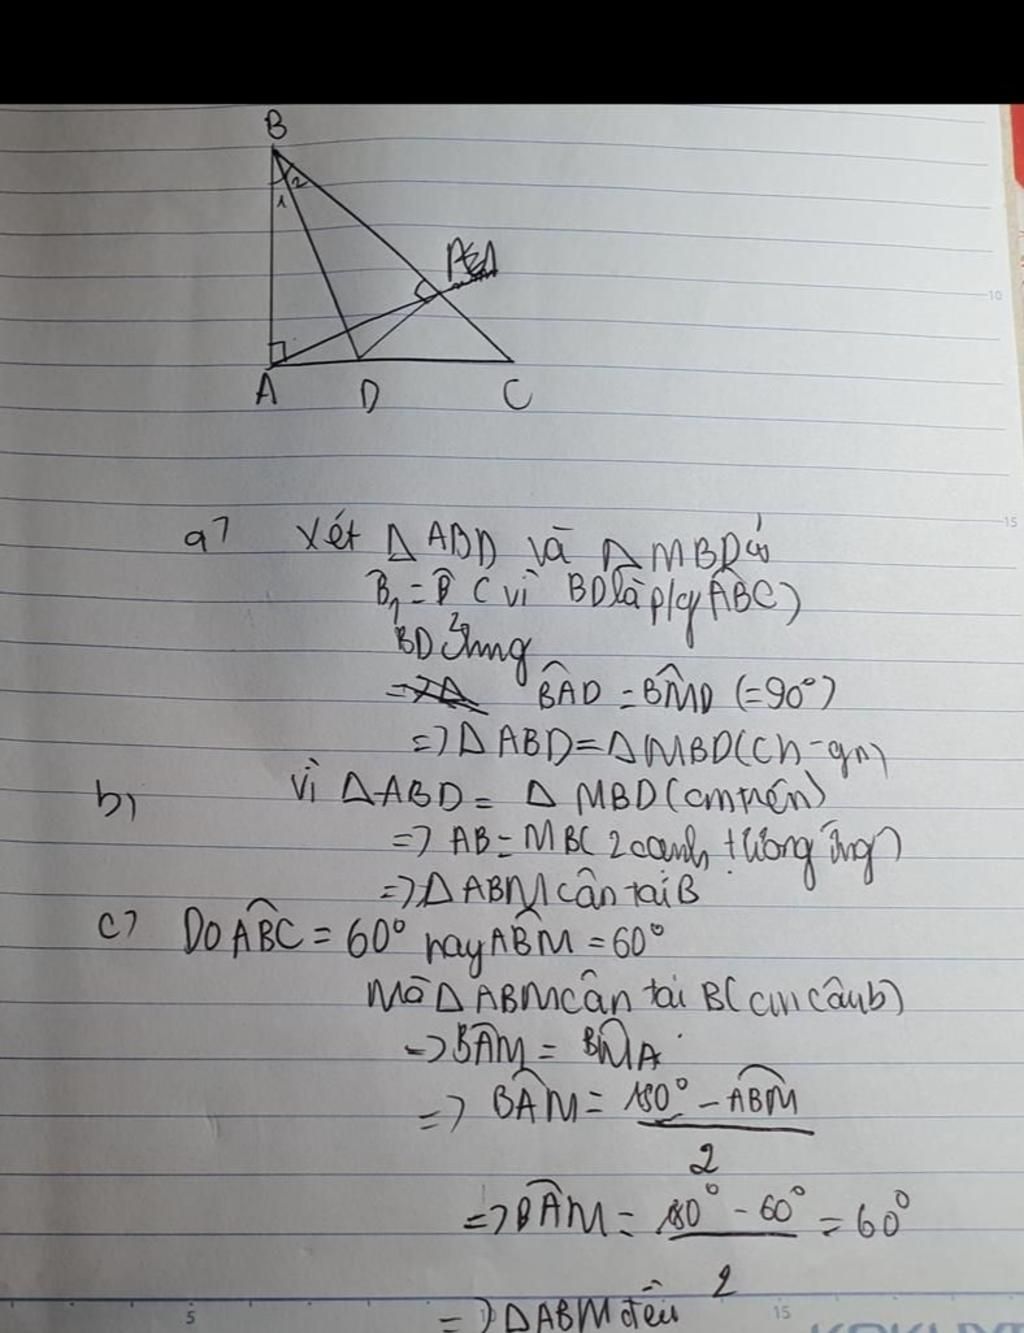 B
1 2
A D C
10
15
a) Xét Δ ABD và Δ MBD có
B̂₁ = B̂₂ ( vì BD là p/g ABC)
BD chung
BÂD = BM̂D (=90°)
=> Δ ABD = Δ MBD (ch-gn)
b) Vì Δ ABD = Δ MBD (cm trên)
=> AB = MB ( 2 cạnh tương ứng)
=> Δ ABM cân tại B
c) Do AB̂C = 60° hay AB̂M = 60°
Mà Δ ABM cân tại B ( cm câu b)
=> BÂM = BM̂A
=> BÂM = 180° - AB̂M
2
=> BÂM = 180° - 60° = 60°
2
=> Δ ABM đều
5 15